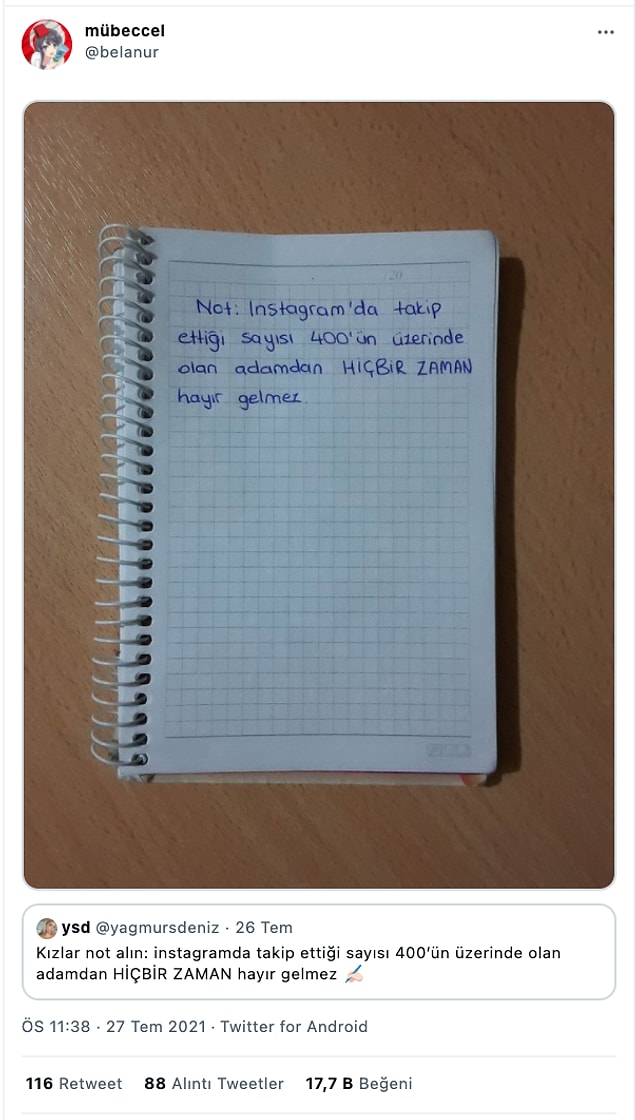 mübeccel
@belanur
20
Not: Instagram'da takip
ettiği sayısı 400'ün üzerinde
olan adamdan HİÇBİR ZAMAN
hayır gelmez.
ysd @yagmursdeniz · 26 Tem
Kızlar not alın: instagramda takip ettiği sayısı 400’ün üzerinde olan
adamdan HİÇBİR ZAMAN hayır gelmez ✍🏻
ÖS 11:38 · 27 Tem 2021 · Twitter for Android
116 Retweet 88 Alıntı Tweetler 17,7 B Beğeni